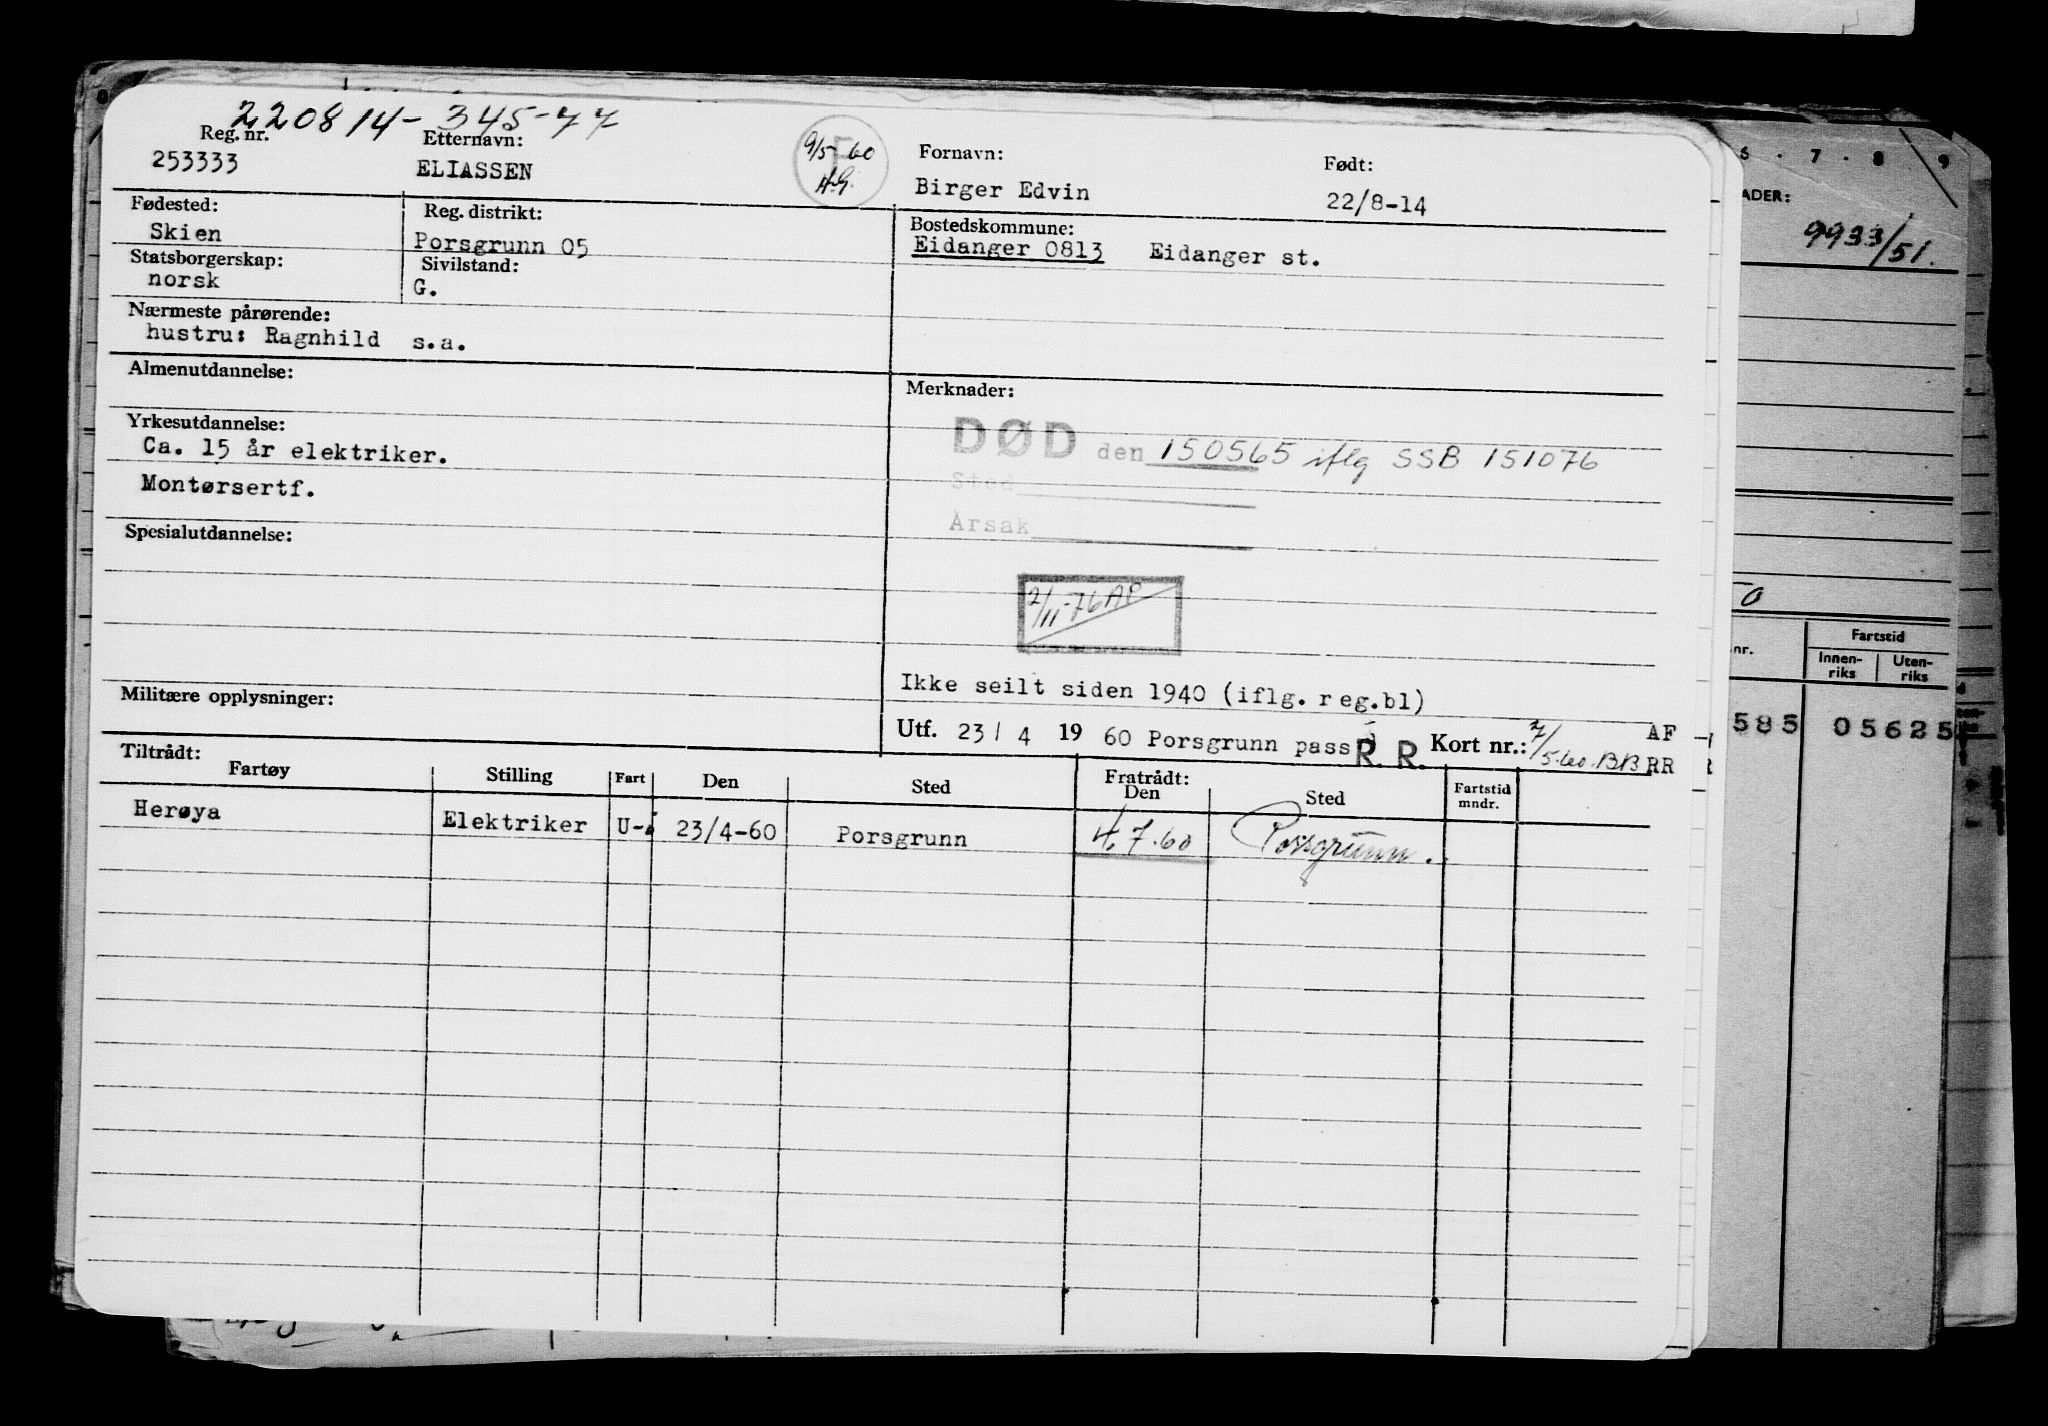 220814-345-77
Reg. nr. Etternavn: Fornavn: Født:
253333 ELIASSEN 9/5-60 H.G. Birger Edvin 22/8-14
Fødested: Reg. distrikt: Bostedskommune:
Skien Porsgrunn 05 Eidanger 0813 Eidanger st.
Statsborgerskap: Sivilstand:
norsk G.
Nærmeste pårørende:
hustru: Ragnhild s.a.
Almenutdannelse:
Merknader:
Yrkesutdannelse:
Ca. 15 år elektriker.
Montørsertf.
DØD den 150565 iflg SSB 151076
Sted
Årsak
Spesialutdannelse:
2/11-76 AP
Ikke seilt siden 1940 (iflg. reg.bl)
Militære opplysninger:
Utf. 23/4 1960 Porsgrunn pass R. R. Kort nr.: 7/5.60.BB AF
RR
Tiltrådt: Fratrådt:
Fartøy Stilling Fart Den Sted Den Sted Fartstid mndr.
Herøya Elektriker U- 23/4-60 Porsgrunn 4.7.60 Porsgrunn.
7 8 9
ADER:
9933/51.
nr. Fartstid
Innen-riks Uten-riks
585 05625